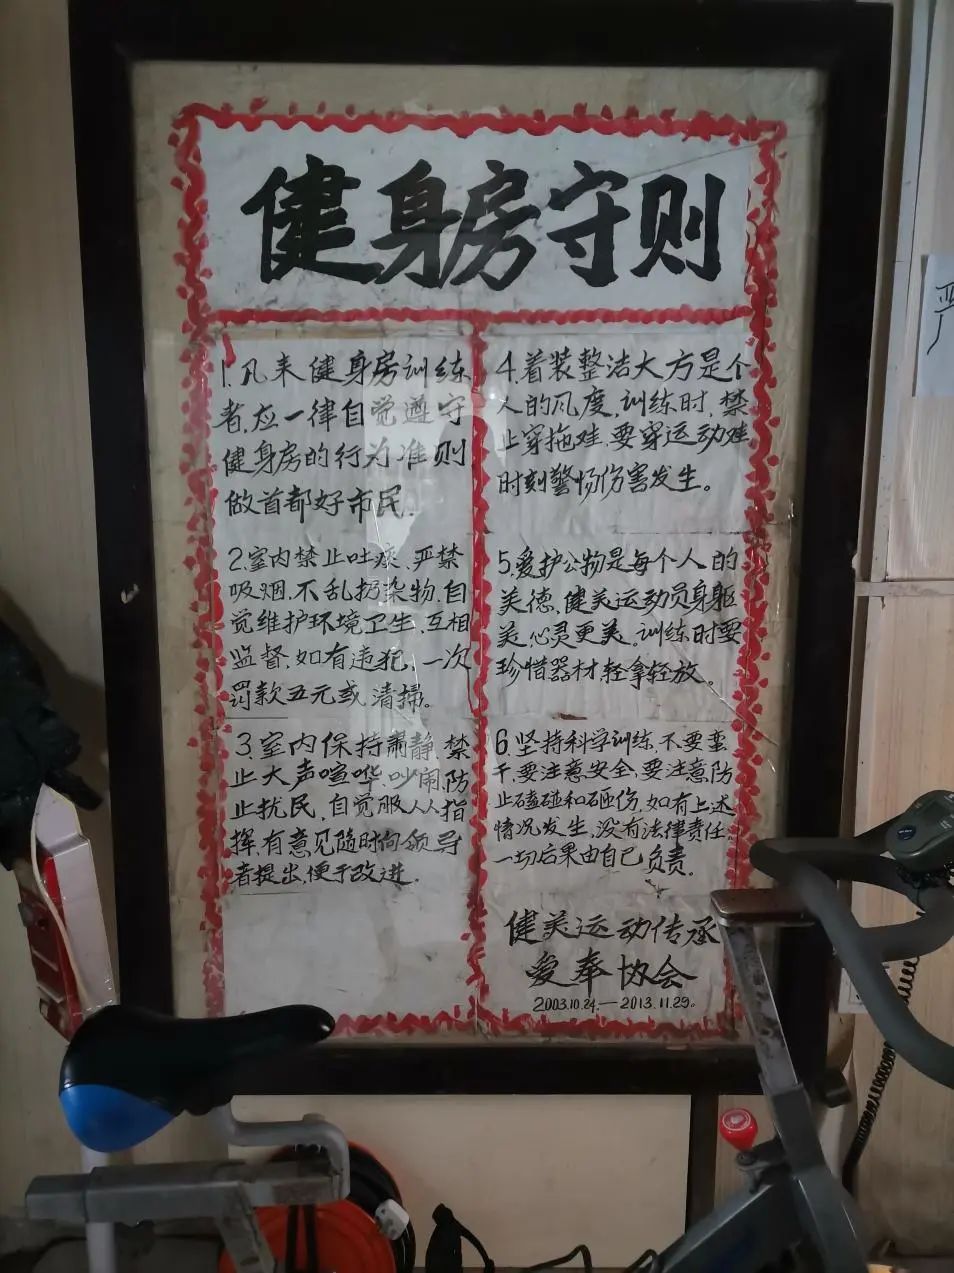 健身房守则
1.凡来健身房训练
者,应一律自觉遵守
健身房的行为准则
做首都好市民.
2.室内禁止吐痰、严禁
吸烟.不乱扔杂物.自
觉维护环境卫生.互相
监督.如有违犯.一次
罚款五元或清掃。
3.室内保持肃静.禁
止大声喧哗.吵闹,防
止扰民,自觉服从人指
挥,有意见随时向领导
者提出,便于改进.
4.着装整洁大方是个
人的风度,训练时,禁
止穿拖鞋.要穿运动鞋
时刻警惕伤害发生。
5.爱护公物是每个人的
美德.健美运动员身躯
美.心灵更美.训练时要
珍惜器材,轻拿轻放。
6.坚持科学训练,不要蛮
干,要注意安全,要注意防
止磕碰和砸伤,如有上述
情况发生,没有法律责任.
一切后果由自己负责。
健美运动传承
爱奉协会
2003.10.24.—2013.11.29。
严